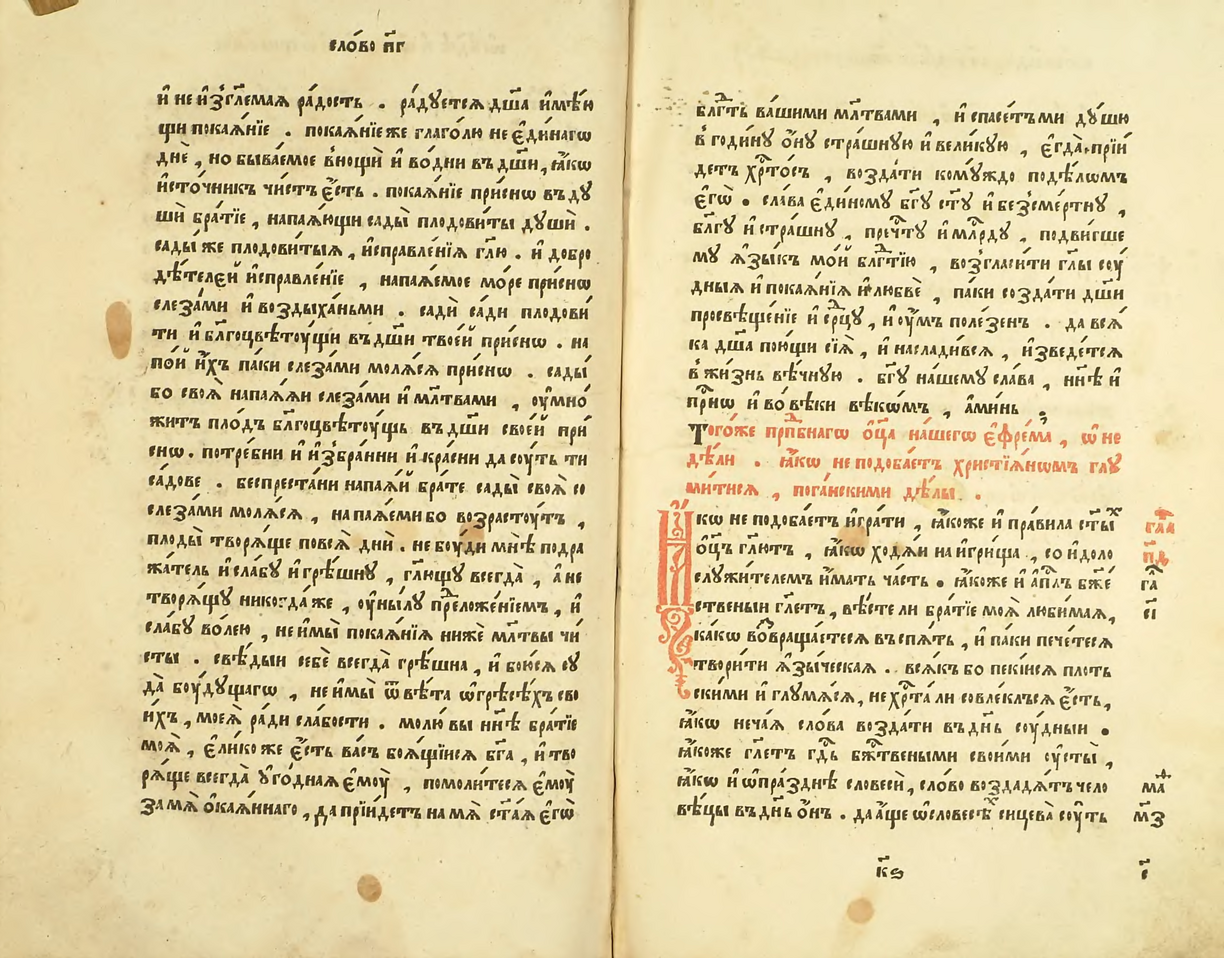 сло́во п҃г
и҆ не и҆згл҃емаѧ ра́дость . ра́дꙋетсѧ дш҃а и҆мѣ́ю
щи покаѧ́нїе . покаѧ́нїе же глаго́лю не є҆ди́нагѡ
днѐ , но быва́емое в̾нощѝ и҆ во́дни въ дш҃и , ꙗ҆́кѡ
и҆сто́чникъ чи́стъ є҆́сть . покаѧ́нїе при́снѡ въ дꙋ
шѝ бра́тїе , напаѧ́ющи сады̀ плодови́ты дꙋ́ши .
сады́ же плодови́тыѧ , и҆справле́нїѧ гл҃ю . и҆ добро
дѣ́телей и҆справле́нїе , напаѧ́емое мо́ре при́снѡ
слеза́ми и҆ воздыха́ньми . садѝ са́ди плодови́
ти и҆ бл҃гоцвѣтꙋ́щи въ дш҃и твое́й при́снѡ . на
по́й и҆́хъ па́ки слеза́ми молѧ́сѧ при́снѡ . сады́
бо своѧ̀ напаѧ́ѧи слеза́ми и҆ мл҃твами , ᲂумно́
житъ пло́дъ бл҃гоцвѣтꙋ́щь въ дш҃и свое́й при́
снѡ . потре́бни и҆ и҆збра́нни и҆ кра́сни да сꙋ́ть ти
са́дове . беспреста́ни напаѧ́й бра́те сады̀ своѧ̀ со
слеза́ми молѧ́сѧ , напаѧ́еми бо возрасту́тъ ,
плоды̀ творѧ́ще по всѧ̀ дни̑ . не бꙋ́ди мнѣ̀ подра
жа́тель и҆ сла́бꙋ и҆ грѣ́шнꙋ , гл҃ющꙋ всегда̀ , а҆ не
творѧ́щꙋ никогда́же , ᲂуны́лꙋ преложе́нїемъ , и҆
сла́бꙋ во́лею , не и҆мы́й покаѧ́нїѧ нижѐ мл҃твы чи́
сты . свѣ́дыи себѐ всегда̀ грѣ́шна , и҆ бою́сѧ сꙋ
да̀ бꙋ́дꙋщагѡ , не и҆мы̀ ѿвѣ́та ѡ҆ грѣсѣ́хъ сво
и́хъ , моеѧ̀ ра́ди сла́бости . молю́ вы нн҃ѣ бра́тїе
моѧ̀ , є҆ли́ко же є҆́сть ва́съ боѧ́щїисѧ бг҃а , и҆ тво
рѧ́ще всегда̀ ᲂуго́днаѧ є҆мꙋ̀ , помоли́тесѧ є҆мꙋ̀
за мѧ̀ ѻ҆каѧ́ннаго , да прїи́детъ на мѧ̀ ст҃а́ѧ є҆гѡ̀
блг҃ть ва́шими мл҃твами , и҆ спасе́тъ ми дꙋ́шю
в̾ годи́нꙋ ѻ҆́нꙋ стра́шнꙋю и҆ вели́кꙋю , є҆гда̀ прїи́
детъ хр҃то́съ , возда́ти комꙋ́ждо по дѣлѡ́мъ
є҆гѡ̀ . сла́ва є҆ди́номꙋ бг҃ꙋ ст҃ꙋ и҆ безсме́ртнꙋ ,
бл҃гꙋ и҆ стра́шнꙋ , преч҃тꙋ и҆ млр҃дꙋ , подви́гше
мꙋ ѧ҆зы́къ мо́й блг҃тїю , возгласи́ти гл҃ы сꙋ́
дныѧ и҆ покаѧ́нїѧ и҆ любвѐ , па́ки созда́ти дш҃и
просвѣще́нїе и҆ ср҃цꙋ , и҆ ᲂу҆́мъ поле́зенъ . да всѧ́
ка дш҃а пою́щи сїѧ̀ , и҆ наслади́всѧ , и҆зведе́тсѧ
в̾ жи́знь вѣ́чнꙋю . бг҃ꙋ на́шемꙋ сла́ва , нн҃ѣ и҆
пр҃нѡ и҆ во вѣ́ки вѣкѡ́мъ , а҆ми́нь .
Того́же прпⷣбнагѡ ѻ҆ц҃а на́шегѡ є҆фре́ма , ѡ҆ не
дѣ́ли . ꙗ҆́кѡ не подоба́етъ христїѧ́нѡмъ глꙋ
ми́тисѧ , пога́нскими дѣ́лы .
Ꙗ҆́кѡ не подоба́етъ и҆гра́ти , ꙗ҆́коже и҆ пра́вила ст҃ы́хъ
ѻ҆ц҃ъ гл҃ютъ , ꙗ҆́кѡ ходѧ́й на и҆гри́ща , со и҆доло
слꙋжи́телемъ и҆́мать ча́сть . ꙗ҆́коже и҆ а҆пл҃ъ бж҃е
ственыи гл҃етъ , вѣ́сте ли бра́тїе моѧ̀ люби́маѧ ,
ка́кѡ возвраща́етесѧ въ спѧ́ть , и҆ па́ки пече́тесѧ
твори́ти ѧ҆зы́ческаѧ . всѧ́къ бо пекі́исѧ пло́ть
скими и҆ глꙋмѧ́сѧ , не хр҃та́ ли совле́клъсѧ є҆́сть ,
ꙗ҆́кѡ не ча́ѧ сло́ва возда́ти въ дн҃ь сꙋ́дныи .
ꙗ҆́коже гл҃етъ гд҃ь бж҃твеными свои́ми ᲂусты̀ ,
ꙗ҆́кѡ и҆ ѡ҆ пра́зднѣ словесѝ , сло́во воздадѧ́тъ чело
вѣ́цы въ дн҃ь ѻ҆́нъ . да а҆́ще ѡ҆ словесѣ́хъ си́цева сꙋ́ть
гл҃а
п҃д
га҃
є҃і
маⷴ
м҃з
к҃ѕ
і҃